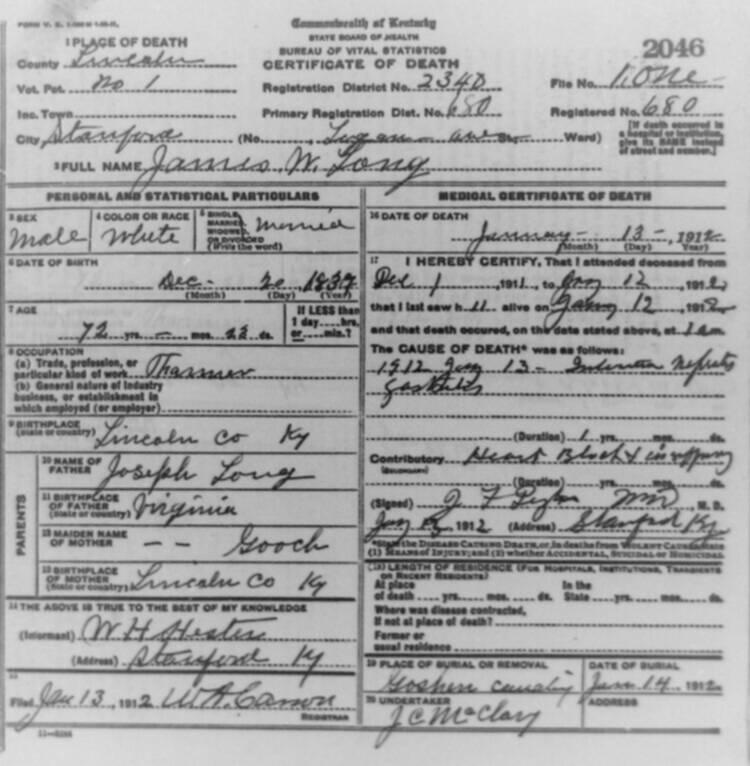 Commonwealth of Kentucky
STATE BOARD OF HEALTH
BUREAU OF VITAL STATISTICS
CERTIFICATE OF DEATH
2046
1 PLACE OF DEATH
County Lincoln
Vot. Pct. No 1
Registration District No. 2340
File No.
Inc. Town
Primary Registration Dist. No. 680
Registered No. 680
City Stanford (No. Logan ave St. Ward)
[If death occurred in a hospital or institution, give its NAME instead of street and number.]
2 FULL NAME James W. Long
PERSONAL AND STATISTICAL PARTICULARS
3 SEX Male
4 COLOR OR RACE White
5 SINGLE, MARRIED, WIDOWED OR DIVORCED (Write the word) Married
6 DATE OF BIRTH
Dec- 20 1839
(Month) (Day) (Year)
7 AGE
72 yrs. - mos. 23 ds.
If LESS than 1 day....hrs. or....min.?
8 OCCUPATION
(a) Trade, profession, or particular kind of work
(b) General nature of industry business, or establishment in which employed (or employer)
9 BIRTHPLACE
(State or country) Lincoln Co Ky
PARENTS
10 NAME OF FATHER Joseph Long
11 BIRTHPLACE OF FATHER (State or country) Virginia
12 MAIDEN NAME OF MOTHER -- Gooch
13 BIRTHPLACE OF MOTHER (State or country) Lincoln Co Ky
14 THE ABOVE IS TRUE TO THE BEST OF MY KNOWLEDGE
(Informant) W H Hester
(Address) Stanford Ky
15
Filed Jan 13, 1912 W.A. Carson
REGISTRAR
MEDICAL CERTIFICATE OF DEATH
16 DATE OF DEATH
January - 13 - 1912
(Month) (Day) (Year)
17 I HEREBY CERTIFY, That I attended deceased from
Dec 1 1911, to Jany 12, 1912,
that I last saw h alive on Jany 12, 1912
and that death occurred, on the date stated above, at 1 am
The CAUSE OF DEATH* was as follows:
1912 Jany 13 -
(Duration) 1 yrs. mos. ds.
Contributory Heart Block
(SECONDARY)
(Duration) yrs. mos. ds.
(Signed) J F M.D.
1912 (Address) Stanford Ky
*State the DISEASE CAUSING DEATH, or, in deaths from VIOLENT CAUSES, state (1) MEANS OF INJURY; and (2) whether ACCIDENTAL, SUICIDAL or HOMICIDAL
(18) LENGTH OF RESIDENCE (FOR HOSPITALS, INSTITUTIONS, TRANSIENTS OR RECENT RESIDENTS)
At place of death yrs. mos. ds. In the State yrs. mos. ds.
Where was disease contracted, if not at place of death?
Former or usual residence
19 PLACE OF BURIAL OR REMOVAL
Goshen
DATE OF BURIAL
Jan. 14, 1912
20 UNDERTAKER
J C McClary
ADDRESS